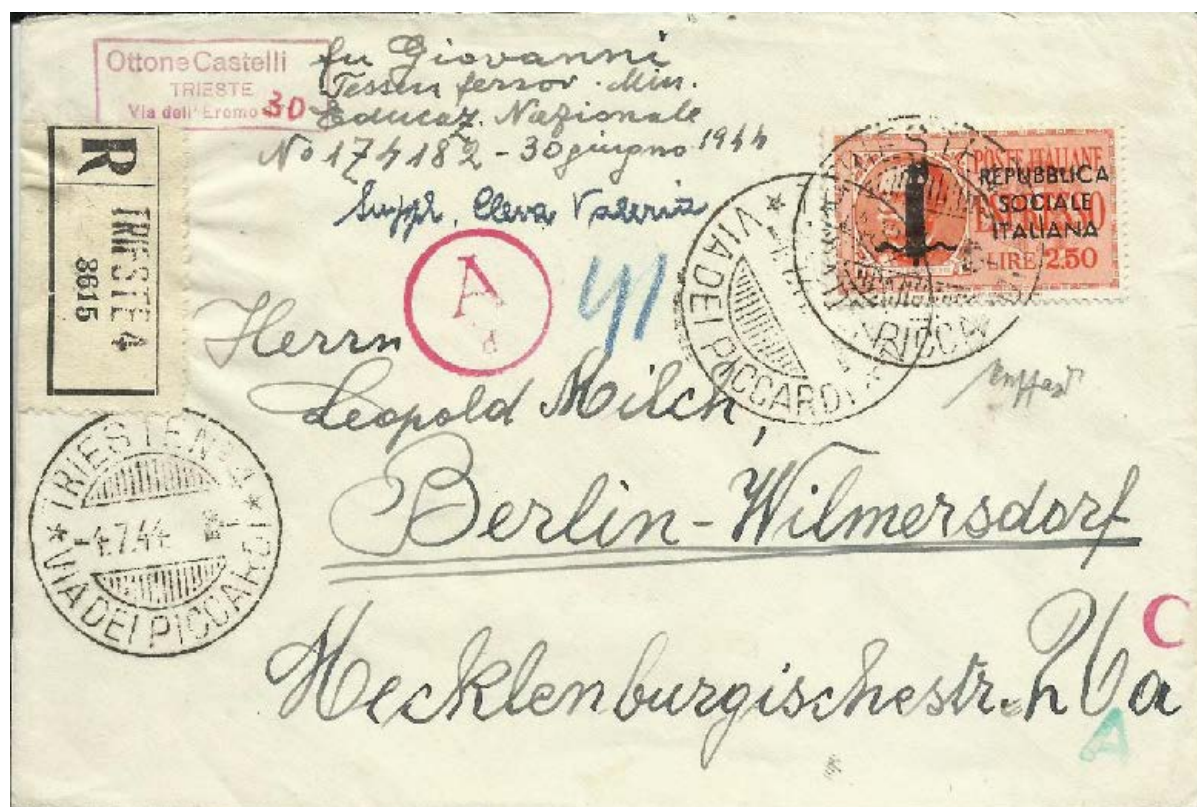 Ottone Castelli
TRIESTE
Via dell'Eremo 30
fu Giovanni
Tesser ferrov. Min.
Educaz. Nazionale
No 174182 - 30 giugno 1944
Suppl. Cleva Valeria
R
TRIESTE 4
8615
A
d
41
POSTE ITALIANE
ESPRESSO
LIRE 2.50
REPUBBLICA
SOCIALE
ITALIANA
VIA DEI PICCARDI
Herrn
Leopold Milch,
Berlin-Wilmersdorf
Mecklenburgischestr. 26a
TRIESTE N. 4
-4.7.44
VIA DEI PICCARDI
C
A